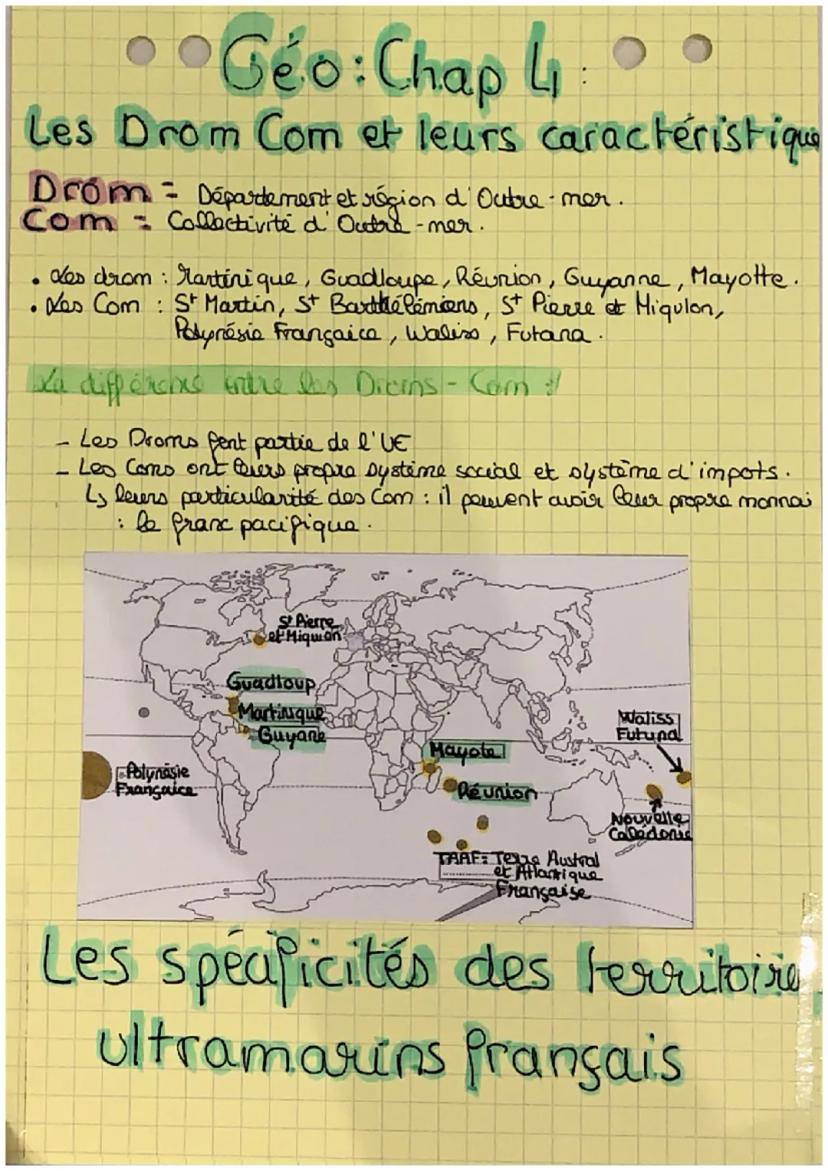 Géo : Chap 4 :
Les Drom Com et leurs caractéristique
Drom = Département et région d'Outre-mer.
Com = Collectivité d'Outre-mer.
• Les drom : Martinique, Guadloupe, Réunion, Guyanne, Mayotte.
• Les Com : St Martin, St Barthélémiens, St Pierre et Miqulon,
Polynésie Françaice, Waliss, Futana.
La différence entre les Droms-Com :
- Les Droms font partie de l'UE
- Les Coms ont leurs propre système social et système d'impots.
↳ leurs particularité des Com : il peuvent avoir leur propre monnai
: le franc pacifique.
St Pierre
et Miquion
Guadloup
Martinique
Guyane
Mayote
Réunion
Waliss
Futuna
Polynésie
Françaice
Nouvelle
Calédonie
TAAF = Terre Austral
et Atlantique
Française
Les spécificités des territoire
ultramarins français